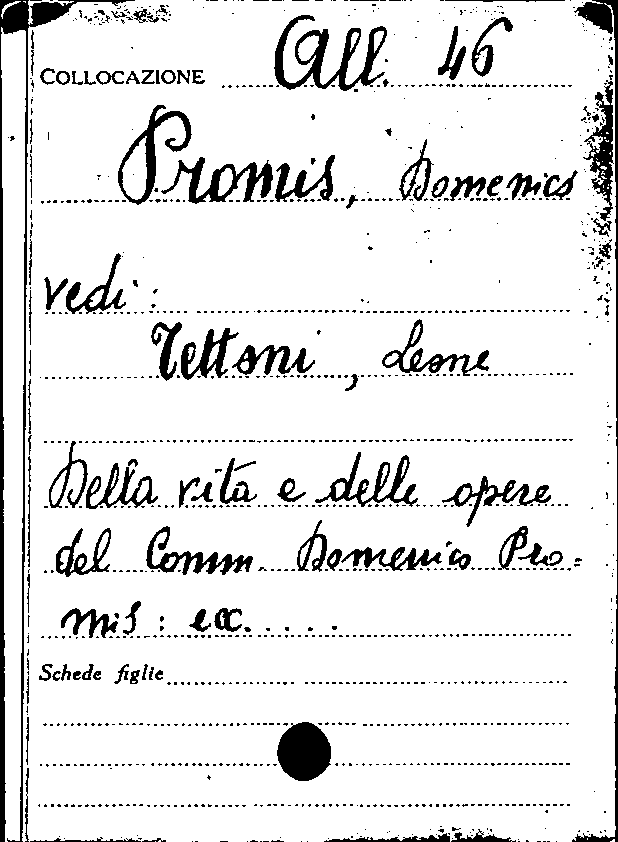 COLLOCAZIONE All. 46
Promis, Domenico
vedi:
Tettoni, Leone
Della vita e delle opere
del Comm. Domenico Pro=
mis: ecc.....
Schede figlie